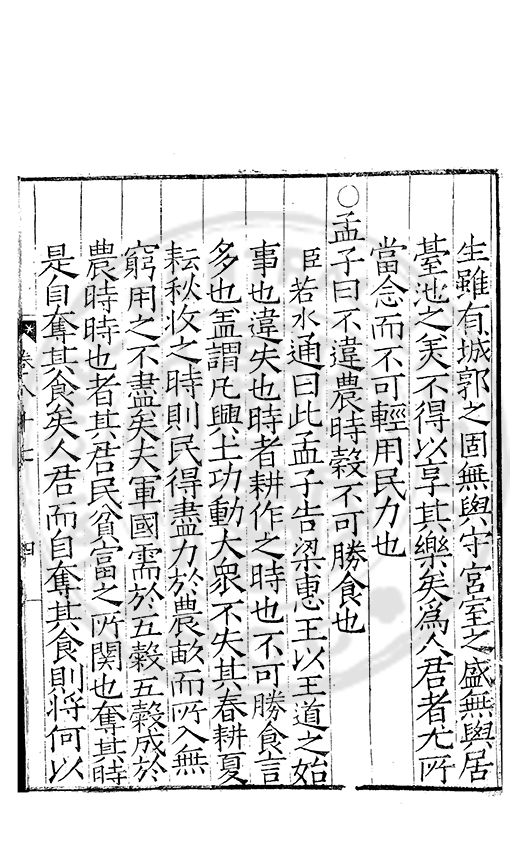 生雖有城郭之固無與守宮室之盛無與居
臺池之美不得以享其樂矣為人君者尤所
當念而不可輕用民力也
○孟子曰不違農時穀不可勝食也
臣若水通曰此孟子告梁惠王以王道之始
事也違失也時者耕作之時也不可勝食言
多也盖謂凡興土功動大衆不失其春耕夏
耘秋收之時則民得盡力於農畝而所入無
窮用之不盡矣夫軍國需於五穀五穀成於
農時時也者其君民貧富之所關也奪其時
是自奪其食矣人君而自奪其食則將何以
卷八十七 四